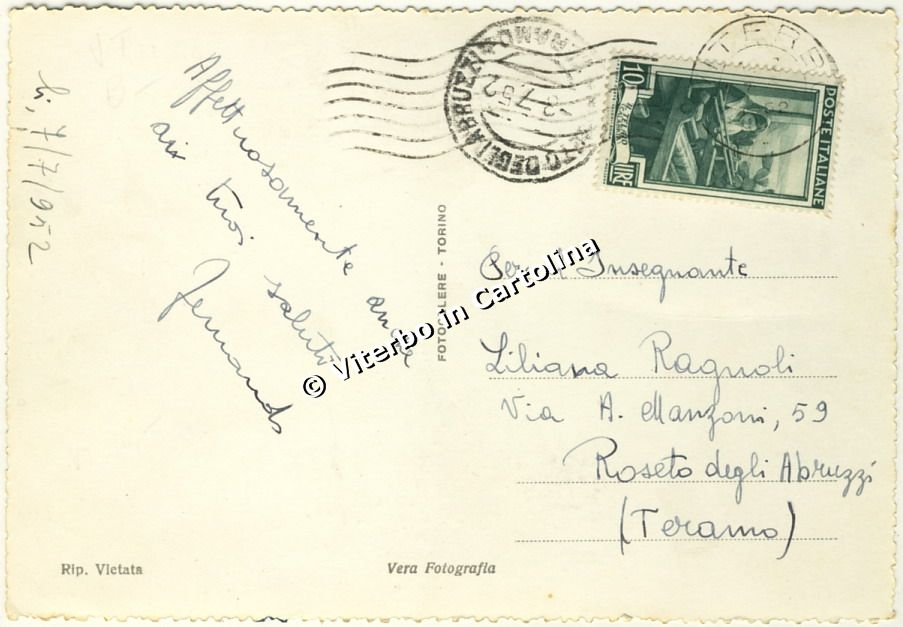 li, 7/7/952
Affettuosamente anche
ai tuoi saluti
Fernando
FOTOCELERE - TORINO
Rip. Vietata
Vera Fotografia
10
LIRE
POSTE ITALIANE
DEGLI ABRUZZI
8-7-52
TERB
Per l'Insegnante
Liliana Ragnoli
Via A. Manzoni, 59
Roseto degli Abruzzi
(Teramo)
© Viterbo in Cartolina